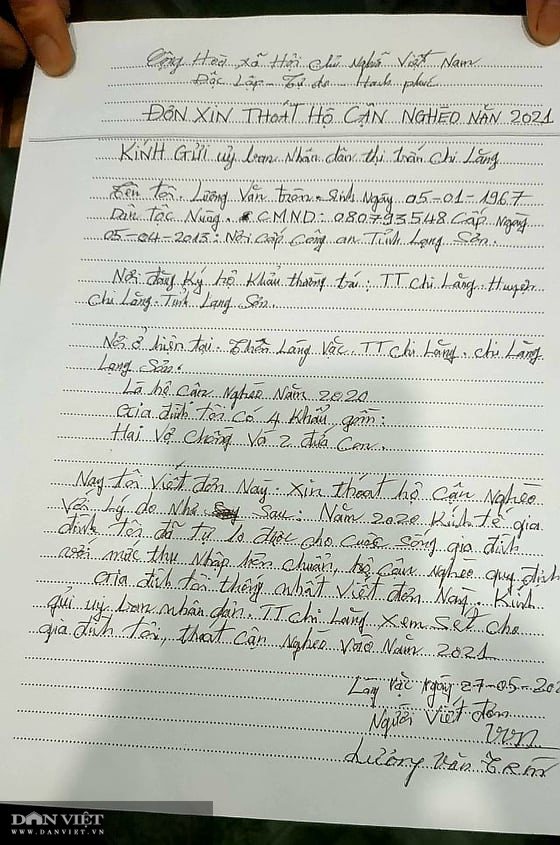 Cộng Hoà xã Hội chủ Nghĩa Việt Nam
Độc Lập - Tự do - Hạnh phúc
ĐƠN XIN THOÁT HỘ CẬN NGHÈO NĂM 2021
KÍNH GỬI uỷ ban Nhân dân thị trấn Chi Lăng
Tên tôi. Lương Văn trên. Sinh Ngày 05-01-1967
Dân tộc Nùng. C.M.N.D: 080793548 Cấp Ngày
05-04-2013: Nơi cấp Công an Tỉnh Lạng Sơn.
Nơi đăng Ký hộ khẩu thường trú: TT Chi Lăng. Huyện
Chi Lăng. Tỉnh Lạng Sơn.
Nơi ở hiện tại. Thôn Làng Vặc. TT Chi Lăng. Chi Lăng
Lạng Sơn.
Là hộ Cận Nghèo Năm 2020
Gia đình tôi Có 4 Khẩu, gồm:
Hai Vợ Chồng Và 2 đứa Con.
Nay tôi Viết đơn Này. Xin thoát hộ Cận Nghèo
Với Lý do Như Sau: Năm 2020 Kinh tế gia
đình tôi đã tự lo được cho Cuộc Sống gia đình
với mức thu Nhập trên chuẩn, hộ Cận Nghèo quy định
Gia đình tôi thống nhất Viết đơn Này. Kính
gửi uỷ ban nhân dân. TT Chi Lăng Xem Sét cho
gia đình tôi, thoát Cận Nghèo Vào Năm 2021
Làng Vặc Ngày 27-05-202
Người Viết đơn
Lương Văn
DÂN VIỆT
WWW.DANVIET.VN